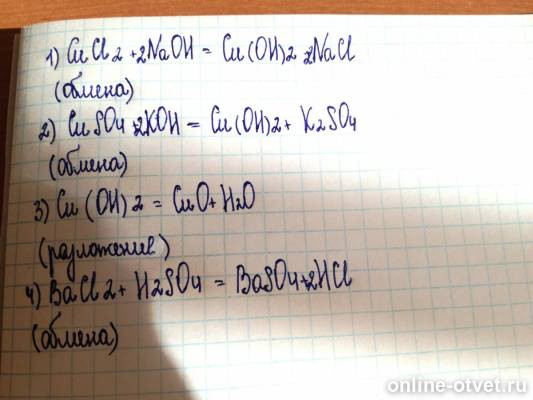 1) CuCl2 +2NaOH = Cu(OH)2 2NaCl
(обмена)
2) CuSO4 +2KOH = Cu(OH)2 + K2SO4
(обмена)
3) Cu(OH)2 = CuO + H2O
(разложение)
4) BaCl2 + H2SO4 = BaSO4+2HCl
(обмена)
online-otvet.ru